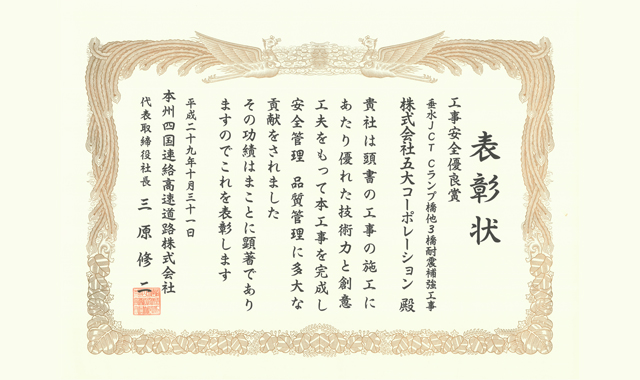 表彰状
工事安全優良賞
垂水JCT Cランプ橋他3橋耐震補強工事
株式会社五大コーポレーション 殿
貴社は頭書の工事の施工に
あたり優れた技術力と創意
工夫をもって本工事を完成し
安全管理 品質管理に多大な
貢献をされました
その功績はまことに顕著であり
ますのでこれを表彰します
平成二十九年十月三十一日
本州四国連絡高速道路株式会社
代表取締役社長 三原修二